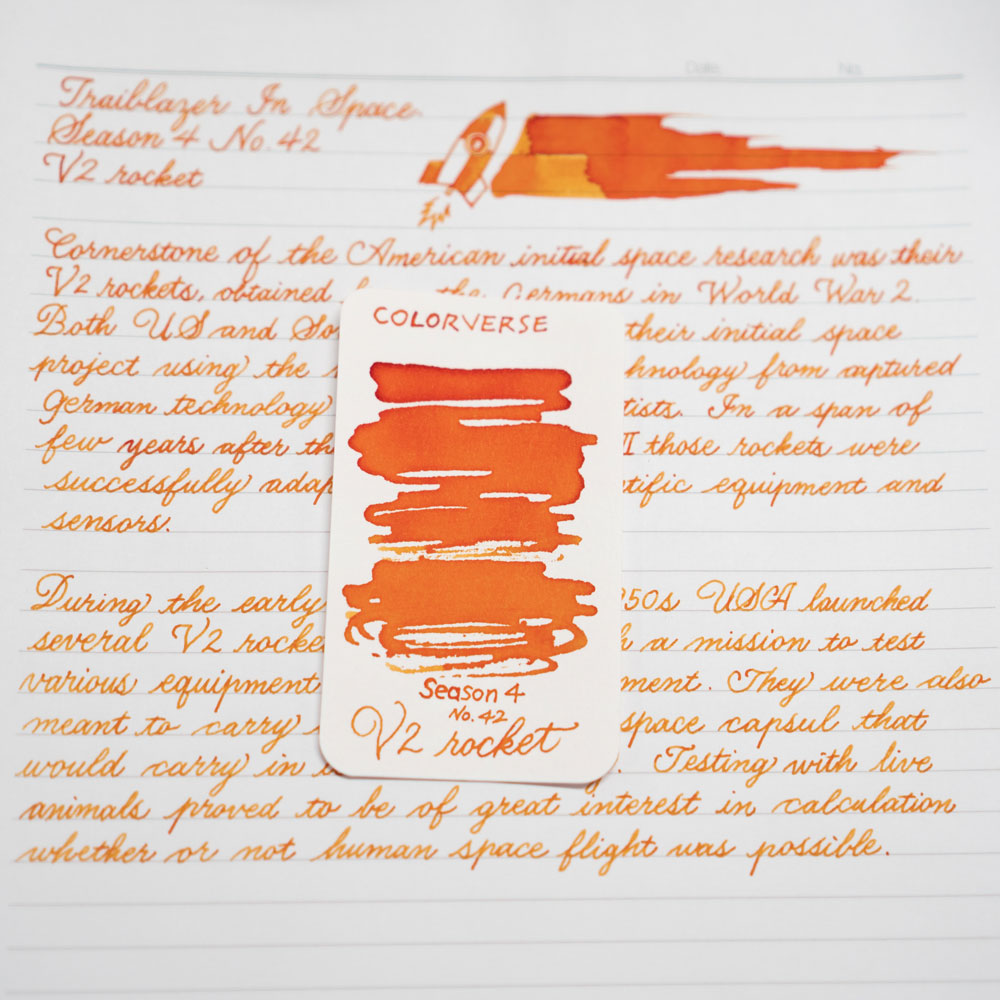 Date No.
Trailblazer In Space
Season 4 No. 42
V2 rocket
Cornerstone of the American initial space research was their
V2 rockets, obtained the Germans in World War 2.
Both US and their initial space
project using the from captured
German technology In a span of
few years after those rockets were
successfully equipment and
sensors.
During the early 50s USA launched
several V2 a mission to test
various equipment They were also
meant to carry space capsul that
would carry in Testing with live
animals proved to be of great interest in calculation
whether or not human space flight was possible.
COLORVERSE
Season 4
No. 42
V2 rocket